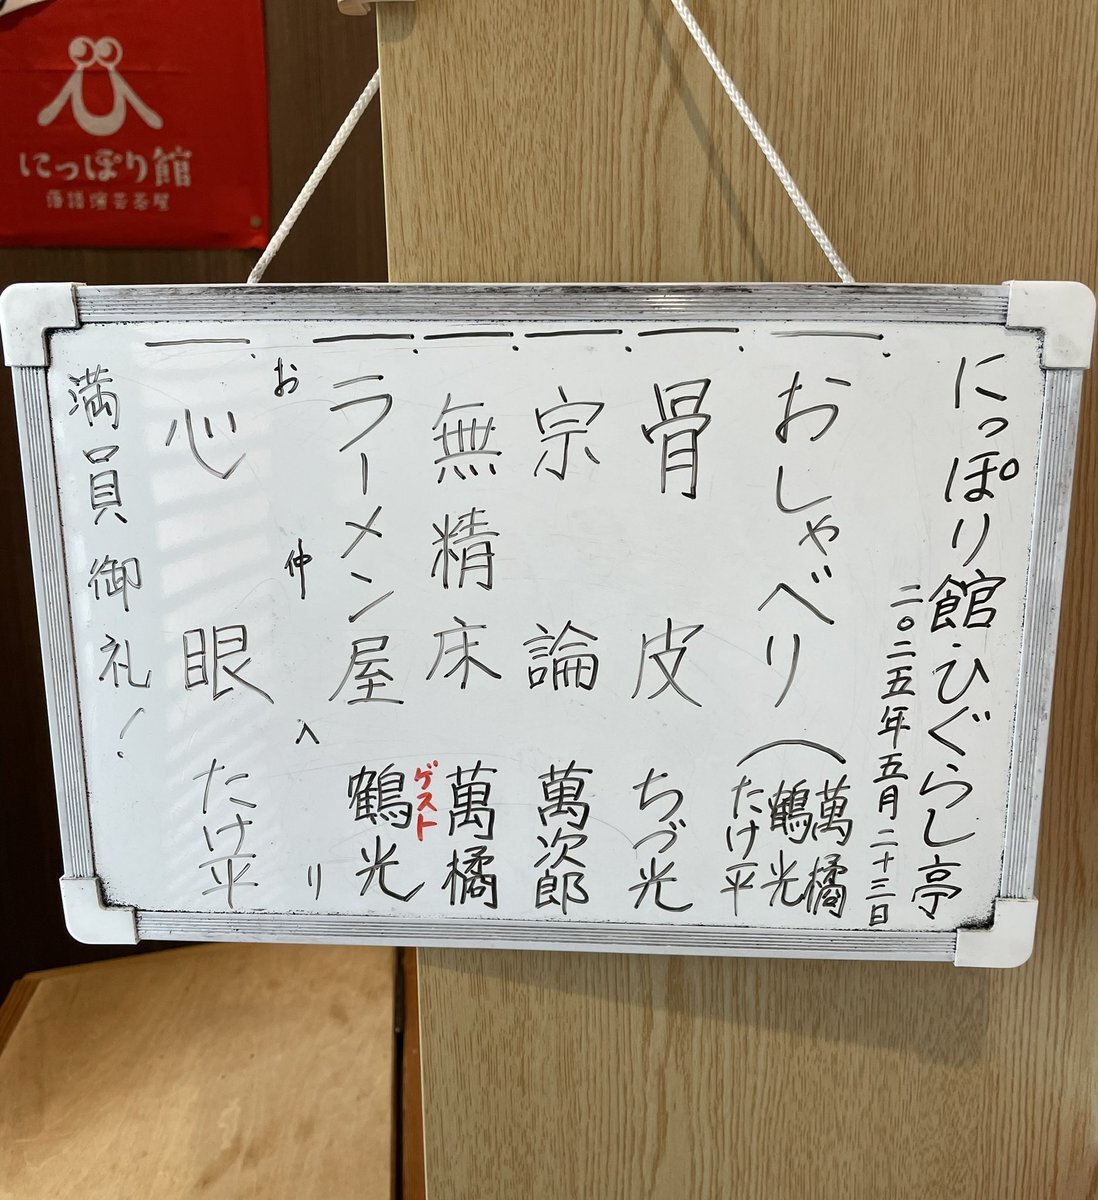 にっぽり館
落語演芸茶屋
にっぽり館・ひぐらし亭
二〇二五年五月二十三日
一、おしゃべり(萬橘 鶴光 たけ平
一、骨皮 ちづ光
一、宗論 萬次郎
一、無精床 萬橘
ゲスト
一、ラーメン屋 鶴光
お仲入り
一、心眼 たけ平
満員御礼!